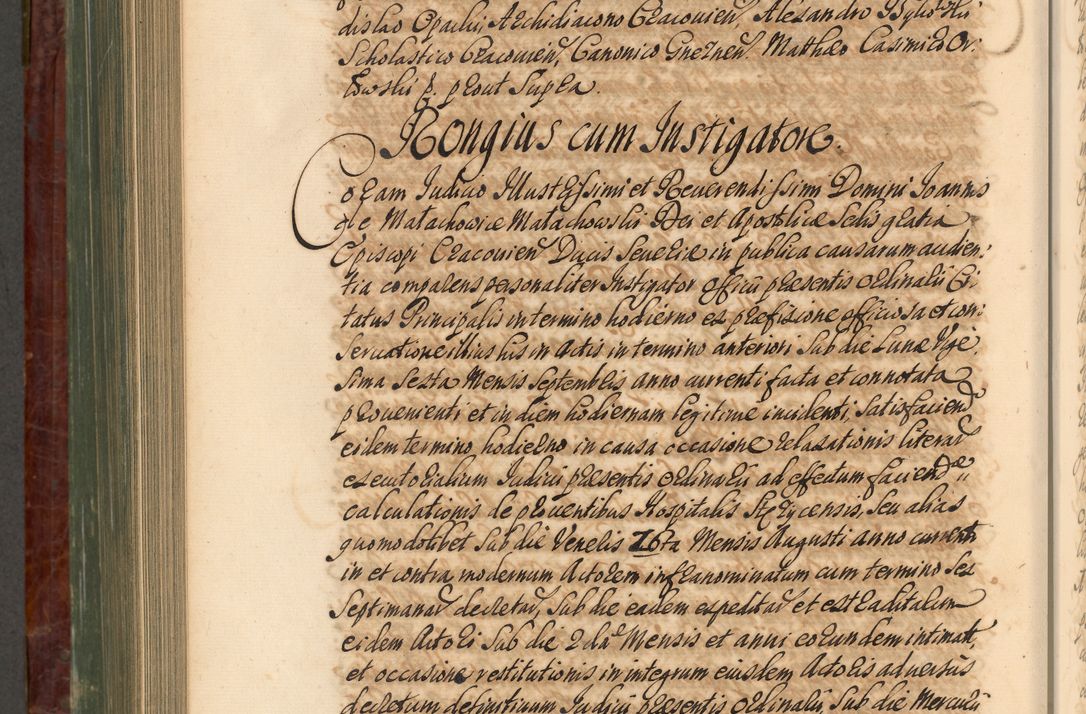 dislao Opacki Archidiacono Cracovien, Alexandro
Scholastico Cracovien, Canonico Gnesnen. Matthæo Casimiro Or:
łowski p. prout supra.
Rongius cum Instigatore.
Coram Iudicio Illustrissimi et Reverendissimi Domini Joannis
de Małachowice Małachowski Dei et Apostolicæ Sedis gratia
Episcopi Cracovien Ducis Severiæ in publica causarum audien:
tia comparens personaliter Instigator officii præsentis Ordinarii Ci:
tatus Principalis in termino hodierno ex præfixione officiosa et con:
servatione illius his in Actis in termino anteriori Sub die Lunæ Vige
sima Sexta Mensis Septembris anno currenti facta et connotata
provenienti et in diem hodiernam legitime incidenti, Satisfaciend
eidem termino hodierno in causa occasione relaxationis literar
executorialium Iudicii præsentis Ordinarii ad effectum faciendæ
calculationis de proventibus Hospitalis seu alias
quomodolibet Sub die Veneris 26ta Mensis Augusti anno currenti
in et contra modernum Actorem infranominatum cum termino Sex
Septimanar decretar, Sub die eadem expeditar et extraditarum
eidem Actori Sub die 2da Mensis et anni eorundem intimat,
et occasione restitutionis in integrum eiusdem Actoris adversus
decretum definitivum Iudicii præsentis Ordinarii Sub die Mercurii